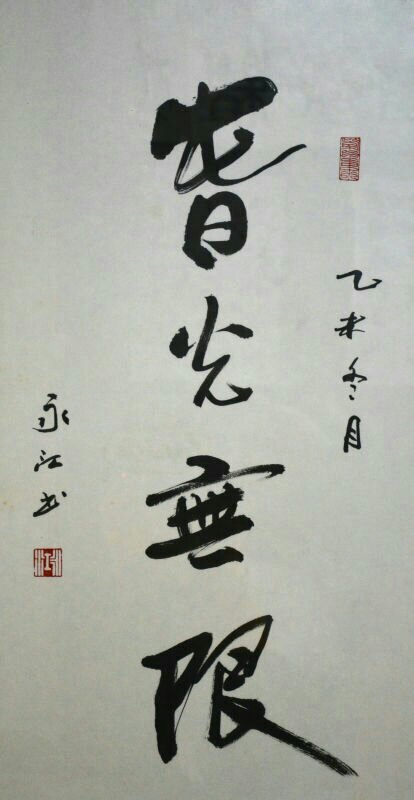 乙未冬月
旾光無限
永江书